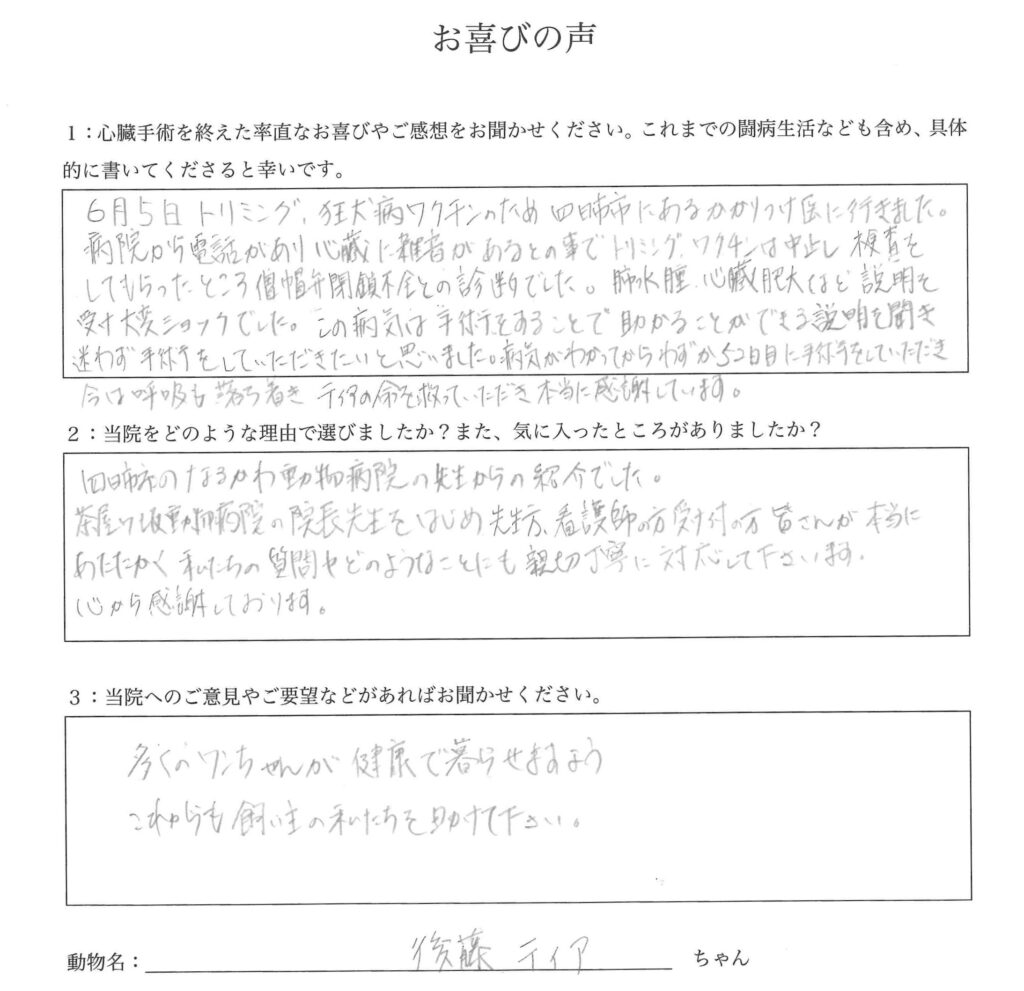 お喜びの声
1：心臓手術を終えた率直なお喜びやご感想をお聞かせください。これまでの闘病生活なども含め、具体
的に書いてくださると幸いです。
6月5日 トリミング、狂犬病ワクチンのため 四日市市にあるかかりつけ医に行きました。
病院から電話があり 心臓に雑音があるとの事でトリミング、ワクチンは中止し 検査を
してもらったところ僧帽弁閉鎖不全との診断でした。肺水腫、心臓肥大など 説明を
受け大変ショックでした。この病気は手術をすることで 助かることができる説明を聞き
迷わず 手術をしていただきたいと思いました。病気がわかってからわずか52日目に手術をしていただき
今は呼吸も 落ち着き ティアの命を救っていただき本当に感謝しています。
2：当院をどのような理由で選びましたか？また、気に入ったところがありましたか？
四日市市のなるかわ動物病院の先生からの紹介でした。
茶屋ヶ坂動物病院の院長先生をはじめ 先生方、看護師の方受付の方 皆さんが 本当に
あたたかく 私たちの 質問やどのようなことにも 親切丁寧に 対応して下さいます。
心から感謝しております。
3：当院へのご意見やご要望などがあればお聞かせください。
多くのワンちゃんが 健康で暮らせますよう
これからも 飼い主の私たちを助けて下さい。
動物名： 後藤 ティア ちゃん